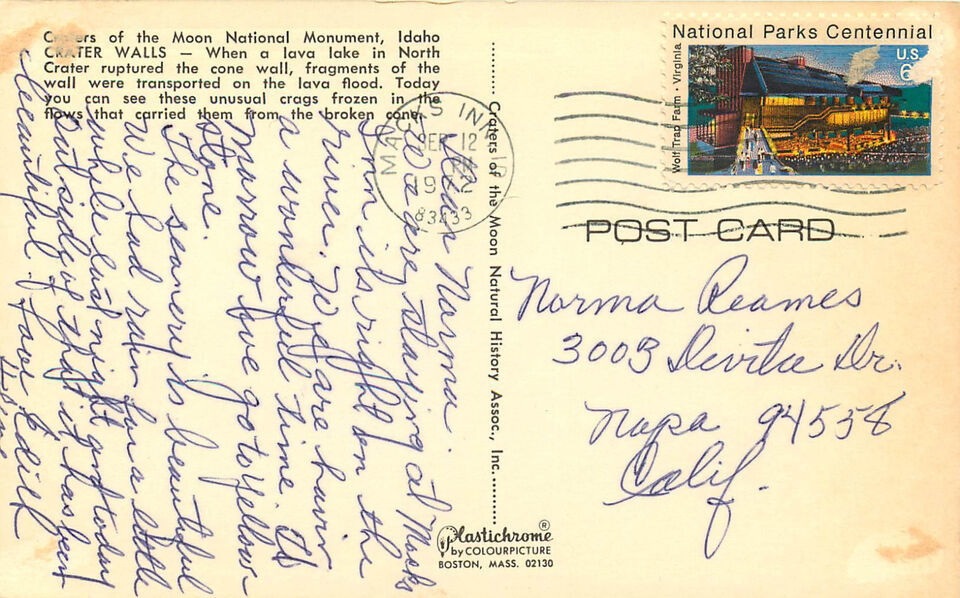 Craters of the Moon National Monument, Idaho
CRATER WALLS — When a lava lake in North
Crater ruptured the cone wall, fragments of the
wall were transported on the lava flood. Today
you can see these unusual crags frozen in the
flows that carried them from the broken cone.
Dear Norma.
We are staying at Macks
Inn its right on the
river. We are havin
a wonderful time. To
morrow we go to Yellow-
stone.
The scenery is beautiful
We had rain for a little
while last night and today
but outside of that it has been
beautiful. Love Edith
Craters of the Moon Natural History Assoc., Inc.
Plastichrome®
by COLOURPICTURE
BOSTON, MASS. 02130
National Parks Centennial
U.S.
6
Wolf Trap Farm • Virginia
MACKS INN, ID
SEP 12
PM
1972
83433
POST CARD
Norma Reames
3003 Devita Dr.
Napa 94558
Calif.